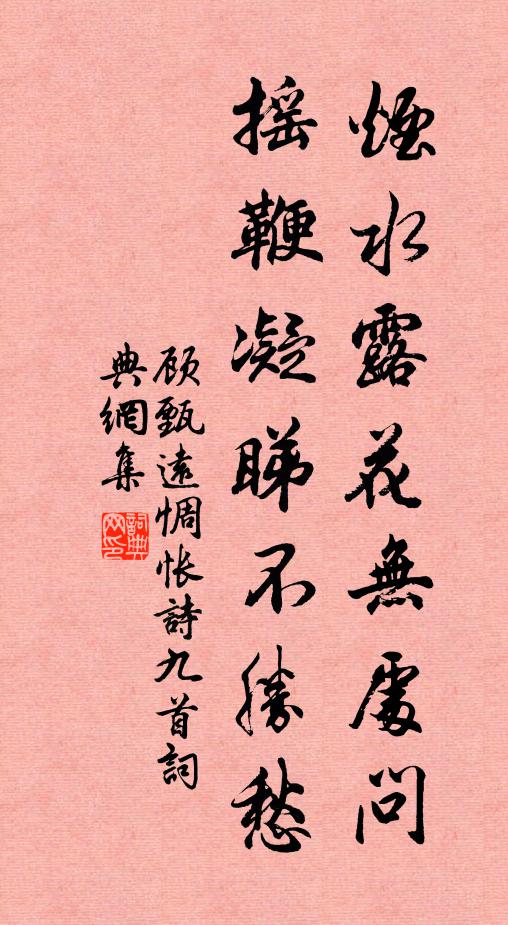 煙水露花無處問
搖鞭凝睇不勝愁
顧甄遠惆悵詩九首詞
典網集
詞典
网印